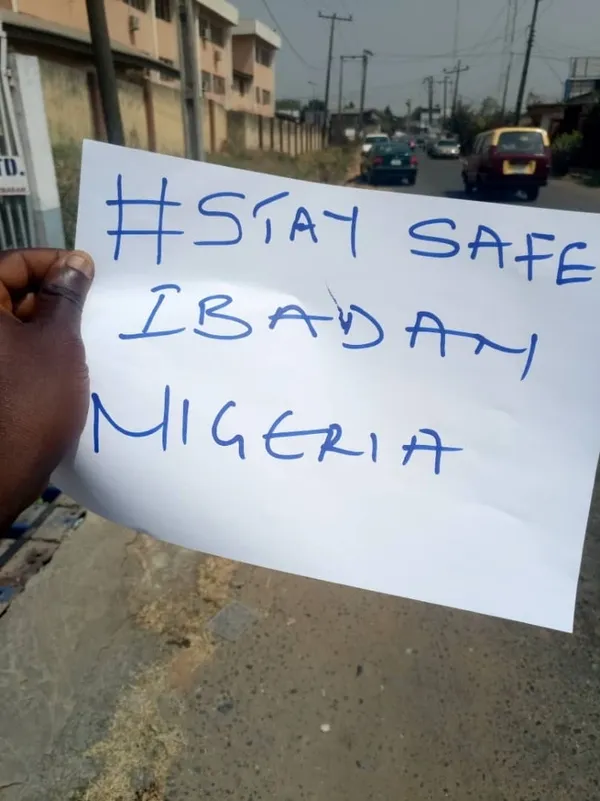 #STAY SAFE
IBADAN
NIGERIA
TD.